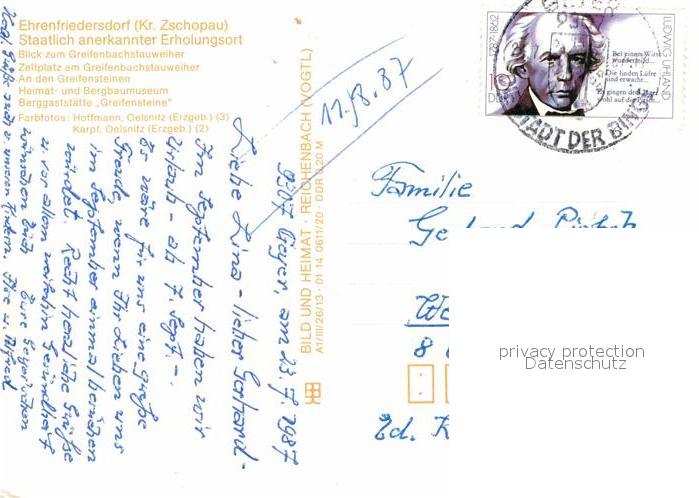 Ehrenfriedersdorf (Kr. Zschopau)
Staatlich anerkannter Erholungsort
Blick zum Greifenbachstauweiher
Zeltplatz am Greifenbachstauweiher
An den Greifensteinen
Heimat- und Bergbaumuseum
Berggaststätte „Greifensteine"
Farbfotos: Hoffmann, Oelsnitz (Erzgeb.) (3)
Karpf, Oelsnitz (Erzgeb.) (2)
11.8.87
BILD UND HEIMAT · REICHENBACH (VOGTL)
A1/III/26/13 · 01 14 0611/20 · DDR 0,20 M
Geyer, am 23.7.1987
Liebe Lina – lieber Gerhard –
Im September haben wir
Urlaub – ab 7. Sept. –.
Es wäre für uns eine große
Freude, wenn Ihr Lieben uns
im September einmal besuchen
würdet. Recht herzliche Grüße
u. vor allem weiterhin Gesundheit
wünschen Euch Eure Geyerschen
1787-1862
LUDWIG UHLAND
10
DDR
Bei einem Wirte
wundermild...
Die linden Lüfte
sind erwacht...
Es gingen drei Jäger
wohl auf die Pirsch...
STADT DER BIN
Familie
8
privacy protection
Datenschutz